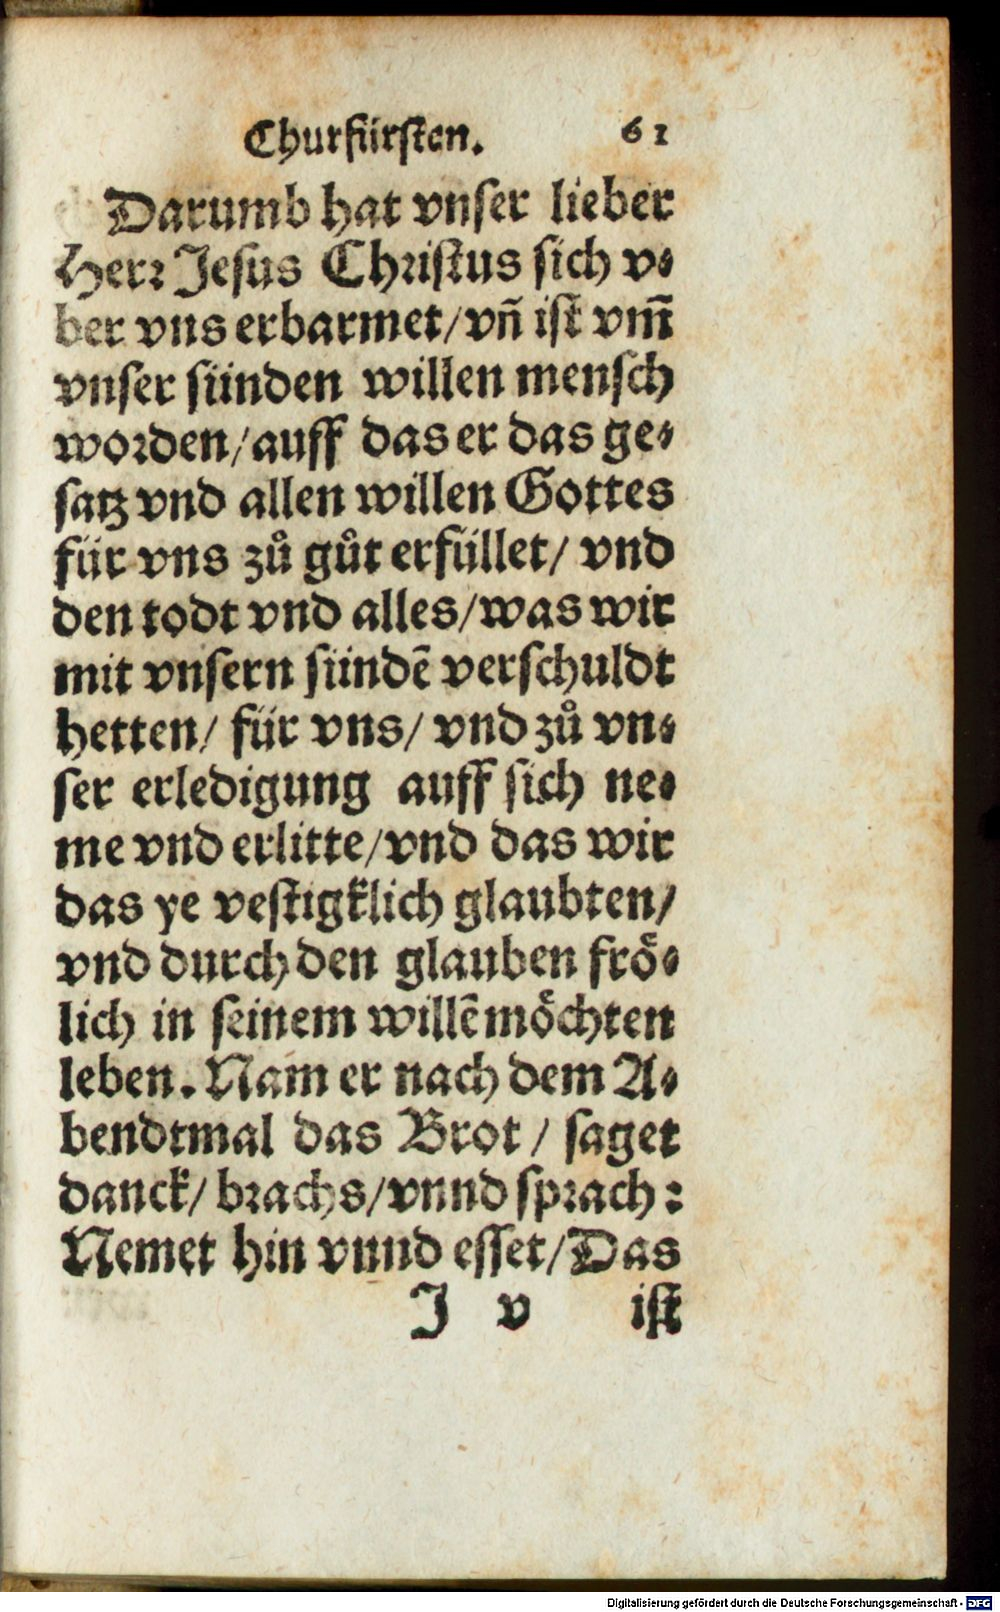 Churfürsten. 61
Darumb hat vnser lieber
Herr Jesus Christus sich v⸗
ber vns erbarmet/ vñ ist vm̃
vnser sünden willen mensch
worden/ auff das er das ge⸗
satz vnd allen willen Gottes
für vns zů gůt erfüllet/ vnd
den todt vnd alles/ was wir
mit vnsern sündẽ verschuldt
hetten/ für vns/ vnd zů vn⸗
ser erledigung auff sich ne⸗
me vnd erlitte/ vnd das wir
das ye vestigklich glaubten/
vnd durch den glauben frö⸗
lich in seinem willẽ möchten
leben. Nam er nach dem A⸗
bendtmal das Brot/ saget
danck/ brachs/ vnnd sprach:
Nemet hin vnnd esset/ Das
J v ist
Digitalisierung gefördert durch die Deutsche Forschungsgemeinschaft - DFG